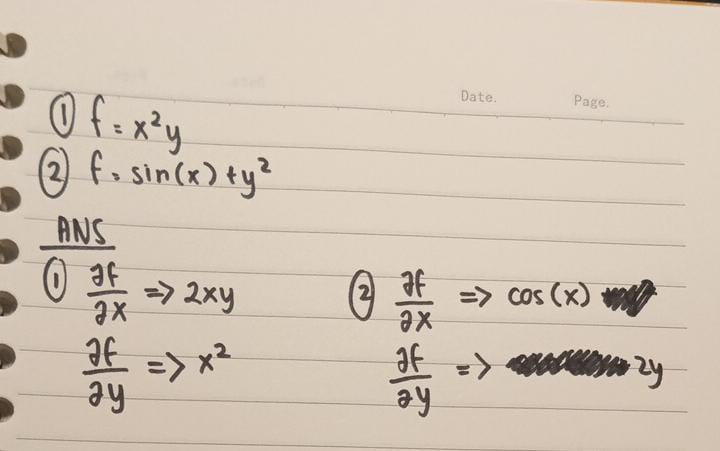 Date. Page.
① f = x²y
② f = sin(x) + y²
ANS
① ∂f/∂x => 2xy
∂f/∂y => x²
② ∂f/∂x => cos(x)
∂f/∂y => 2y